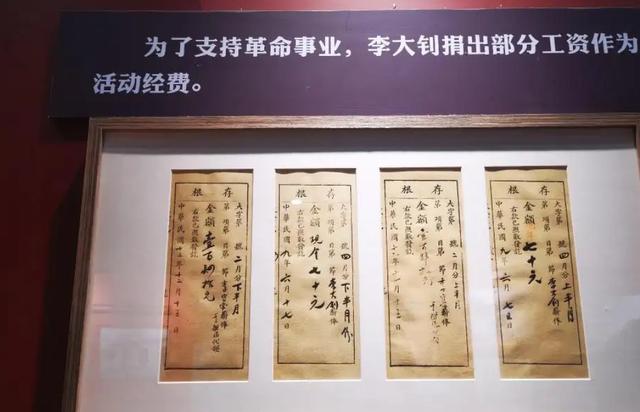 为了支持革命事业，李大钊捐出部分工资作为
活动经费。
存根
大字第 號 二月份下半月
第 項第 目第 節
金額
右款已照數發訖
中華民國 年十二月十三日
存根
大字第 號 四月份下半月份
第 項第 目第 節 李大釗薪俸
金額 現金七十元
右款已照數發訖
中華民國九年六月十七日
存根
大字第 號 二月份上半月
第 項第 目第 節
金額
右款已照數發訖
中華民國
存根
大字第 號 四月份上半月
第 項第 目第 節 李大釗薪俸
金額 七十元
右款已照數發訖
中華民國九年六月